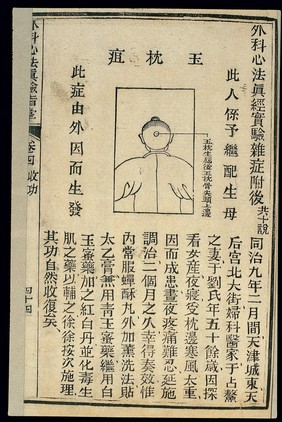 外科心法真經實驗雜症附後 共十說
此人係予繼配生母
玉枕疽
玉枕生腦後玉枕骨尖頭上邊
此症由外因而生發
同治九年二月間天津城東天
后宮北大街婦科醫家于占鰲
之妻于劉氏年五十餘歲因探
看女產夜寢受枕邊寒風太重
因而成患晝夜疼痛難忍延施
調治二個月之久幸得奏效惟
內常服蟬酥丸外加薰洗法貼
太乙膏無不用玉蜜藥繼用白
玉蜜藥加之紅白丹並化毒生
肌之藥以輔之徐徐按次施理
其功自然收復矣
外科心法真驗指掌
卷四 收功
四十四